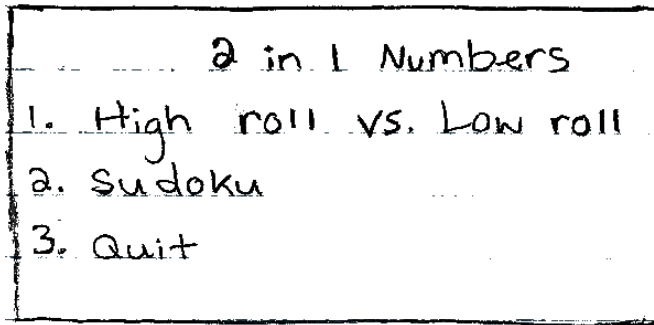 2 in 1 Numbers
1. High roll vs. Low roll
2. Sudoku
3. Quit